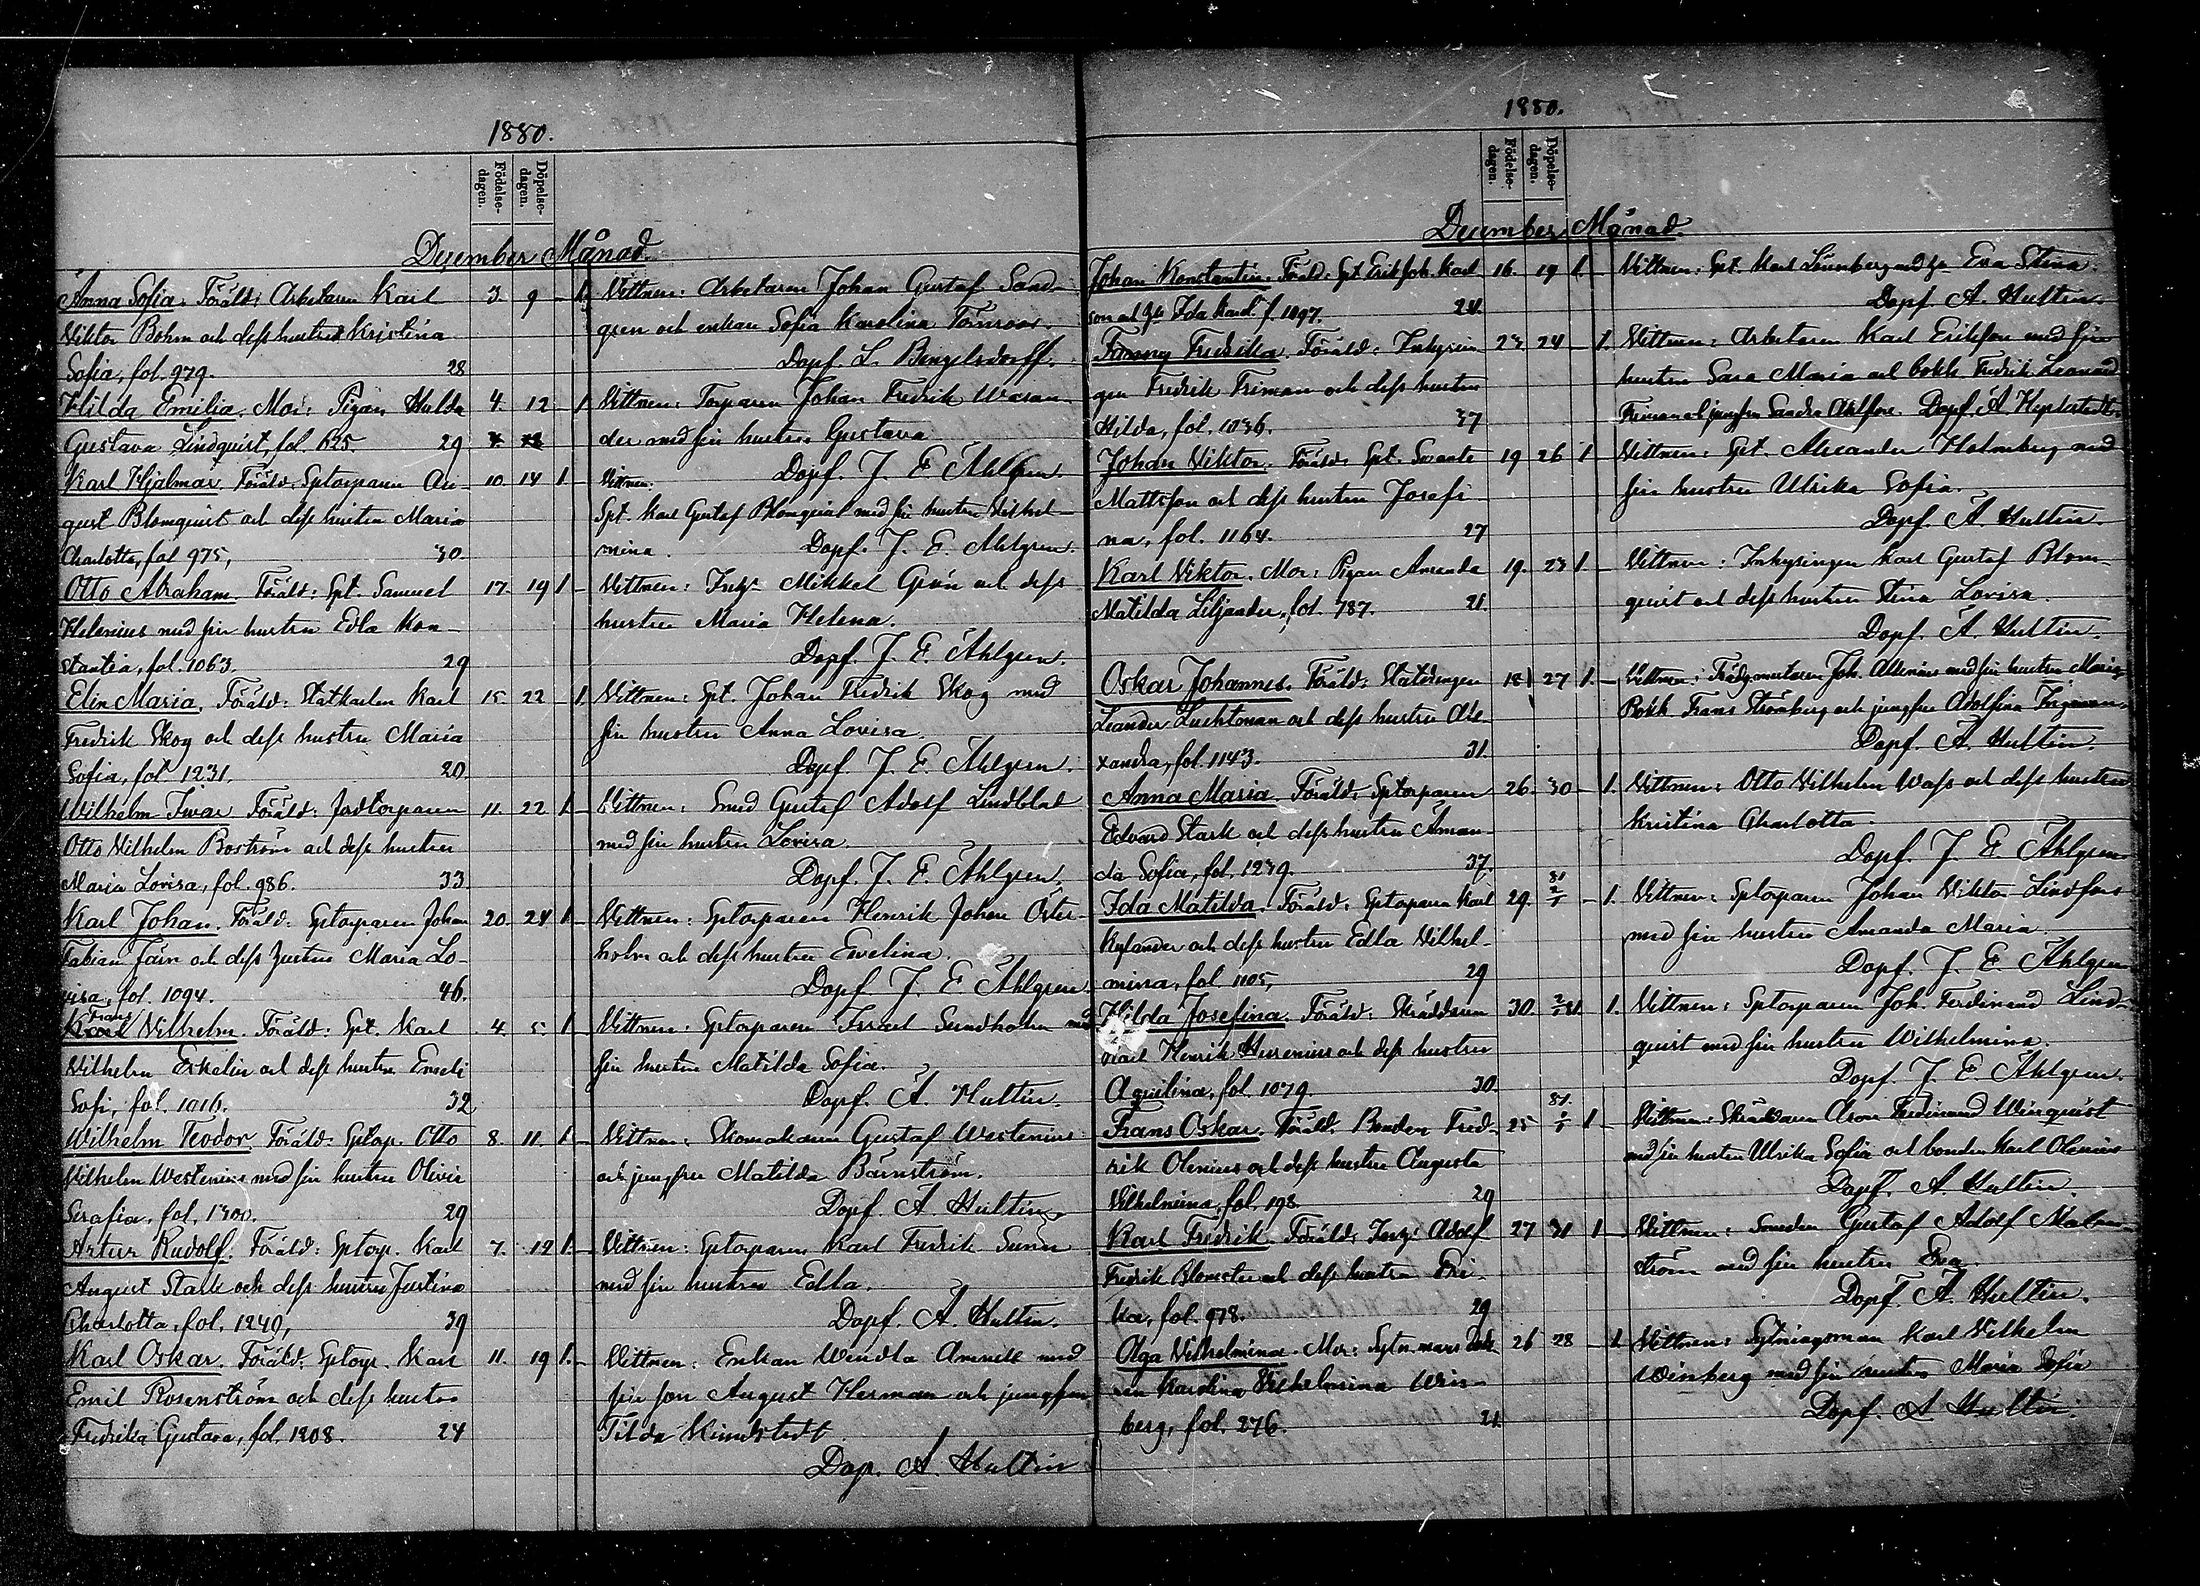 1880.
Födelse-dagen. Döpelse-dagen.
December Månad.
Anna Sofia. Föräld: Arbetaren Karl 3. 9 - 1.
Viktor Bohm och dess hustru Kristina
Sofia, fol. 979. 28
Vittnen: Arbetaren Johan Gustaf Sand-
gren och enkan Sofia Karolina
Döpf. L. Bengelsdorff.
Hilda Emilia. Mor: Pigan Hulda 4. 12 - 1
Gustava Lindquist, fol. 625. 29
Vittnen: Torparen Johan Fredrik Wasan-
der med sin hustru Gustava
Döpf. J. E. Ahlgren.
Karl Hjalmar. Föräld: Sptorparen Au- 10. 14 1.
gust Blomquist och dess hustru Maria
Charlotta, fol 975, 30.
Vittnen:
Spt. Karl Gustaf Blomquist med sin hustru Vilhel-
mina. Döpf. J. E. Ahlgren.
Otto Abraham. Föräld: Spt. Samuel 17. 19 1 -
Helenius med sin hustru Edla Kon-
stantia, fol. 1063. 29
Vittnen: Inhys. Mikkel Grön och dess
hustru Maria Helena.
Döpf. J. E. Ahlgren.
Elin Maria. Föräld: Statkarlen Karl 15. 22 - 1.
Fredrik Skog och dess hustru Maria
Sofia, fol 1231. 20.
Vittnen: Spt. Johan Fredrik Skog med
sin hustru Anna Lovisa.
Döpf. J. E. Ahlgren.
Wilhelm Ivar Föräld: Jordtorparen 11. 22 1. -
Otto Vilhelm Boström och dess hustru
Maria Lovisa, fol. 986. 33.
Vittnen: Smed Gustaf Adolf Lindblad
med sin hustru Lovisa
Döpf. J. E. Ahlgren
Karl Johan. Föräld: Sptorparen Johan 20. 24 1 -
Fabian Färn och dess hustru Maria Lo-
visa, fol. 1094. 46.
Vittnen: Sptorparen Henrik Johan Öster-
holm och dess hustru Evelina.
Döpf. J. E Ahlgren
Frans
Karl Vilhelm. Föräld: Spt. Karl 4. 5 1. -
Vilhelm Eskelin och dess hustru Emeli
Sofi, fol. 1016. 32
Vittnen: Sptorparen Israel Sundholm med
sin hustru Matilda Sofia.
Döpf. A. Hultin.
Wilhelm Teodor Föräld: Sptorp. Otto 8. 11. 1. -
Vilhelm Westenius med sin hustru Olivia
Serafia, fol. 1300. 29
Vittnen: Skomakaren Gustaf Westenius
och jungfru Matilda Bärnström.
Döpf. A Hultin.
Artur Rudolf. Föräld: Sptorp. Karl 7. 12 1. -
August Stark och dess hustru Justina
Charlotta, fol. 1240, 39
Vittnen: Sptorparen Karl Fredrik Sunn
med sin hustru Edla.
Döpf. A. Hultin.
Karl Oskar. Föräld: Sptorp. Karl 11. 19 1. -
Emil Rosenström och dess hustru
Fredrika Gustava, fol. 1208. 24
Vittnen: Enkan Wendla med
sin son August Herman och jungfru
Tilda
Döp. A. Hultin
1880.
Födelse-dagen. Döpelse-dagen.
December Månad.
Johan Konstantin. Föräld: Spt. Erik Joh. Karl- 16. 19 1
son och Ida Karol. f. 1097. 24.
Vittnen: Spt. Karl Lönnberg med h. Eva Stina.
Döpf A. Hultin.
Fanny Fredrika. Föräld: Inhysin- 23 24 - 1.
gen Fredrik Friman och dess hustru
Hilda, fol. 1036. 37
Vittnen: Arbetaren Karl Eriksson med sin
hustru Sara Maria och bokh. Fredrik Leonard
Friman och jungfru Sandra Ahlfors. Döpf.
Johan Viktor. Föräld: Spt. Svante 19 26 1 -
Mattsson och dess hustru Josefi-
na, fol. 1164. 27
Vittnen: Spt. Alexander Holmberg med
sin hustru Ulrika Sofia.
Döpf. A. Hultin.
Karl Viktor. Mor: Pigan Amanda 19. 23 1. -
Matilda Liljander, fol. 787. 21.
Vittnen: Inhysingen Karl Gustaf Blom-
quist och dess hustru Stina Lovisa.
Döpf. A. Hultin.
Oskar Johannes. Föräld: Statdrengen 18 27 1. -
Leander Luchtman och dess hustru Ale-
xandra, fol. 1143. 31.
Vittnen: Joh. Allenius med sin hustru Maria,
Bokh. Frans Strömberg och jungfru Adolfina
Döpf. A. Hultin.
Anna Maria. Föräld: Sptorparen 26. 30 - 1.
Edvard Stark och dess hustru Aman-
da Sofia, fol. 1239. 37.
Vittnen: Otto Vilhelm Wass och dess hustru
Kristina Charlotta
Döpf. J. E. Ahlgren
Ida Matilda. Föräld: Sptorparen Karl 29. 2/1 81 - 1.
Kylander och dess hustru Edla Vilhel-
mina, fol. 1105, 29
Vittnen: Sptorparen Johan Viktor Lindfors
med sin hustru Amanda Maria.
Döpf. J. E. Ahlgren
Hilda Josefina. Föräld: Skräddaren 30. 2/1 81 1.
Karl Henrik Hurenius och dess hustru
Aqvilina, fol. 1079. 30.
Vittnen: Sptorparen Joh. Ferdinand Lind-
quist med sin hustru Wilhelmina.
Döpf. J. E. Ahlgren.
Frans Oskar. Föräld: Bonden Fred- 25 1/1 81. 1 -
rik Olenius och dess hustru Augusta
Vilhelmina, fol. 198 29
Vittnen: Skräddaren Aron Ferdinand Winquist
med sin hustru Ulrika Sofia och bonden Karl Olenius
Döpf. A. Hultin.
Karl Fredrik. Föräld: Inhys. Adolf 27 31 1
Fredrik Blomster och dess hustru Eri-
ka, fol. 978. 29
Vittnen: Smeden Gustaf Adolf Malm-
ström med sin hustru Eva.
Döpf. A. Hultin.
Olga Vilhelmina. Mor: Sytn. mans dott- 26 28 - 1.
ren Karolina Vilhelmina Win-
berg, fol. 276. 21.
Vittnen: Sytningsman Karl Vilhelm
Winberg med sin hustru Maria Sofia
Döpf. A Hultin.